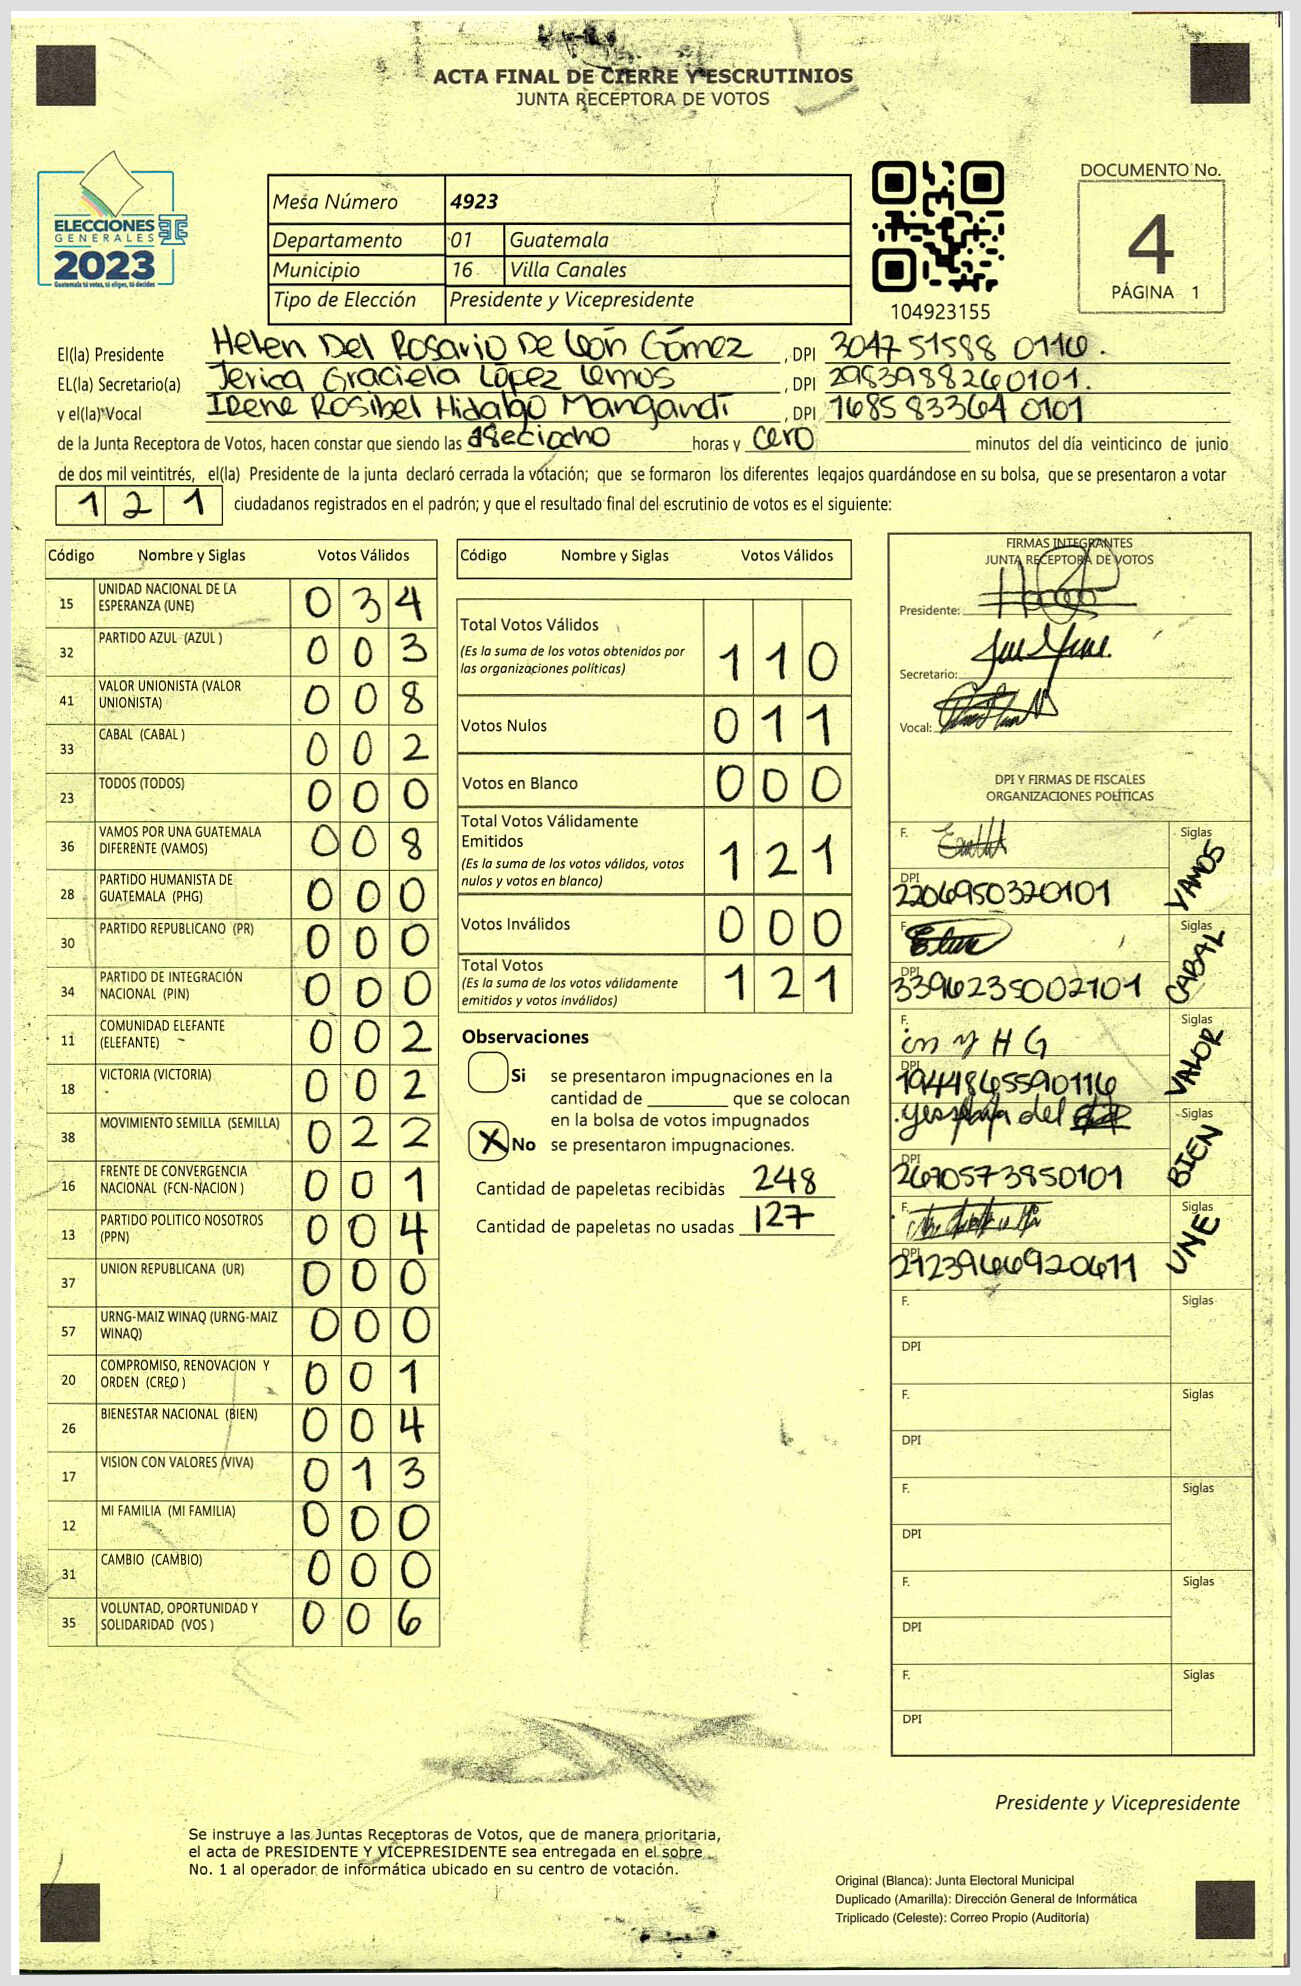 ACTA FINAL DE CIERRE Y ESCRUTINIOS
JUNTA RECEPTORA DE VOTOS
ELECCIONES
GENERALES
2023
Guatemala tú votas, tú eliges, tú decides
Mesa Número 4923
Departamento 01 Guatemala
Municipio 16 Villa Canales
Tipo de Elección Presidente y Vicepresidente
104923155
DOCUMENTO No.
4
PÁGINA 1
El(la) Presidente Helen Del Rosario De León Gómez, DPI 3047 51588 0116.
EL(la) Secretario(a) Jerica Graciela López Lemus, DPI 2983988260101.
y el(la) Vocal Irene Rosibel Hidalgo Mangandí, DPI 1685 83364 0101
de la Junta Receptora de Votos, hacen constar que siendo las dieciocho horas y cero minutos del día veinticinco de junio
de dos mil veintitrés, el(la) Presidente de la junta declaró cerrada la votación; que se formaron los diferentes legajos guardándose en su bolsa, que se presentaron a votar
121 ciudadanos registrados en el padrón; y que el resultado final del escrutinio de votos es el siguiente:
Código Nombre y Siglas Votos Válidos
15 UNIDAD NACIONAL DE LA ESPERANZA (UNE) 034
32 PARTIDO AZUL (AZUL ) 003
41 VALOR UNIONISTA (VALOR UNIONISTA) 008
33 CABAL (CABAL ) 002
23 TODOS (TODOS) 000
36 VAMOS POR UNA GUATEMALA DIFERENTE (VAMOS) 008
28 PARTIDO HUMANISTA DE GUATEMALA (PHG) 000
30 PARTIDO REPUBLICANO (PR) 000
34 PARTIDO DE INTEGRACIÓN NACIONAL (PIN) 000
11 COMUNIDAD ELEFANTE (ELEFANTE) 002
18 VICTORIA (VICTORIA) 002
38 MOVIMIENTO SEMILLA (SEMILLA) 022
16 FRENTE DE CONVERGENCIA NACIONAL (FCN-NACION ) 001
13 PARTIDO POLITICO NOSOTROS (PPN) 004
37 UNION REPUBLICANA (UR) 000
57 URNG-MAIZ WINAQ (URNG-MAIZ WINAQ) 000
20 COMPROMISO, RENOVACION Y ORDEN (CREO ) 001
26 BIENESTAR NACIONAL (BIEN) 004
17 VISION CON VALORES (VIVA) 013
12 MI FAMILIA (MI FAMILIA) 000
31 CAMBIO (CAMBIO) 000
35 VOLUNTAD, OPORTUNIDAD Y SOLIDARIDAD (VOS ) 006
Código Nombre y Siglas Votos Válidos
Total Votos Válidos
(Es la suma de los votos obtenidos por
las organizaciones políticas) 110
Votos Nulos 011
Votos en Blanco 000
Total Votos Válidamente
Emitidos
(Es la suma de los votos válidos, votos
nulos y votos en blanco) 121
Votos Inválidos 000
Total Votos
(Es la suma de los votos válidamente
emitidos y votos inválidos) 121
Observaciones
Si se presentaron impugnaciones en la
cantidad de ________ que se colocan
en la bolsa de votos impugnados
X No se presentaron impugnaciones.
Cantidad de papeletas recibidas 248
Cantidad de papeletas no usadas 127
FIRMAS INTEGRANTES
JUNTA RECEPTORA DE VOTOS
Presidente:
Secretario:
Vocal:
DPI Y FIRMAS DE FISCALES
ORGANIZACIONES POLÍTICAS
F. Siglas VAMOS
DPI 2206950320101
F. Siglas CABAL
DPI 3396235002101
F. Siglas VALOR
DPI 1944865590116
F. Siglas BIEN
DPI 2670573850101
F. Siglas UNE
DPI 2123966920611
F. Siglas
DPI
F. Siglas
DPI
F. Siglas
DPI
F. Siglas
DPI
F. Siglas
DPI
Presidente y Vicepresidente
Se instruye a las Juntas Receptoras de Votos, que de manera prioritaria,
el acta de PRESIDENTE Y VICEPRESIDENTE sea entregada en el sobre
No. 1 al operador de informática ubicado en su centro de votación.
Original (Blanca): Junta Electoral Municipal
Duplicado (Amarilla): Dirección General de Informática
Triplicado (Celeste): Correo Propio (Auditoría)